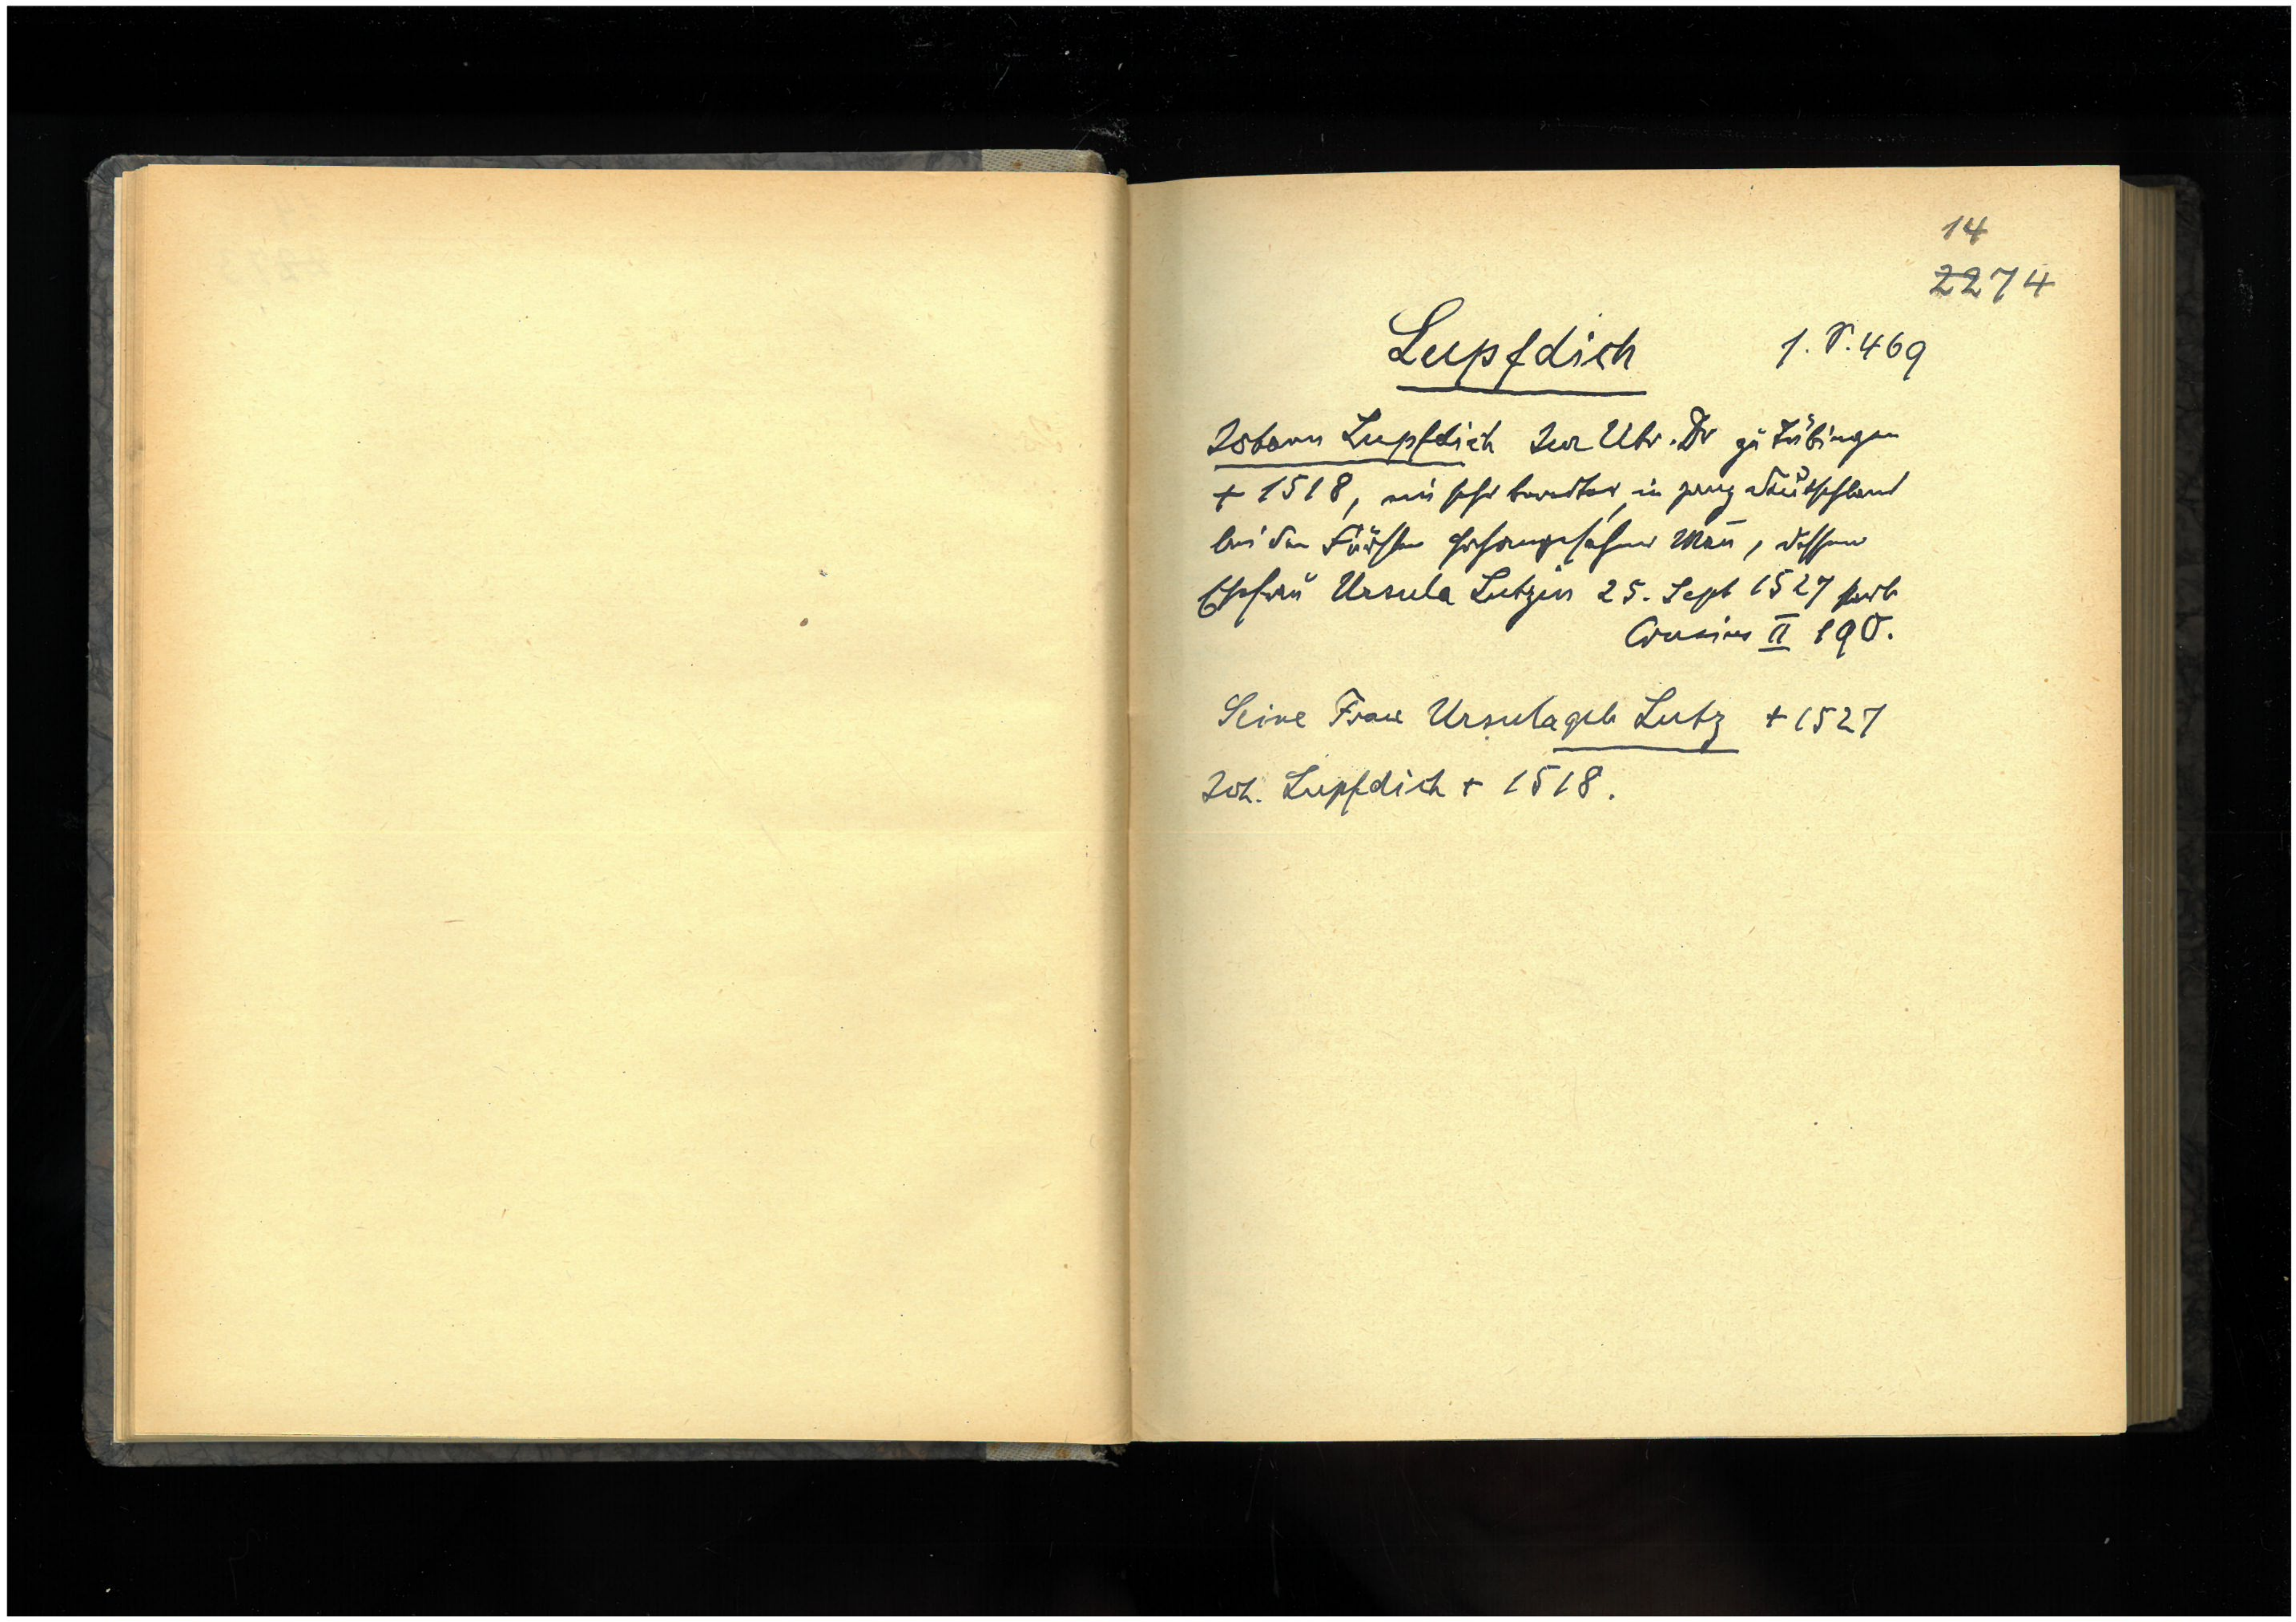 14
2274
Lupfdich 1. S. 469
Johann Lupfdich Jur Utr. Dr zu Tübingen
+ 1518, ein sehr beredter, in ganz Deutschland
bei den Fürsten hochangesehener Mañ, dessen
Ehefrau Ursula Lutzin 25. Sept 1527 starb
Crusius II 190.
Seine Frau Ursula geb Lutz + 1527
Joh. Lupfdich + 1518.